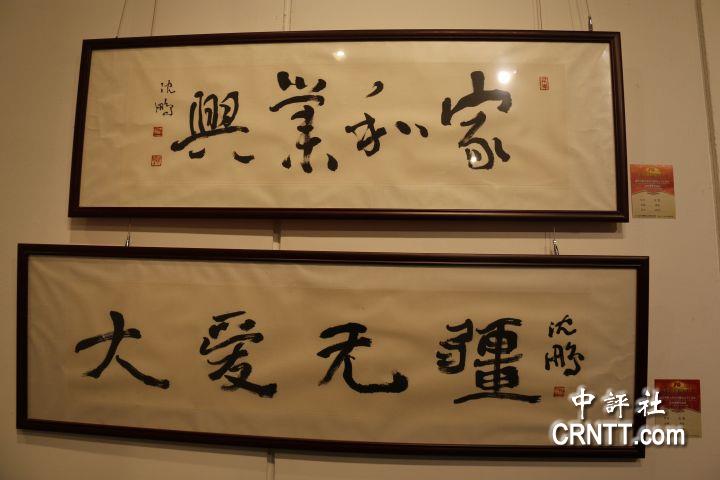 家和業興
沈鹏
大爱无疆
沈鹏
中評社
CRNTT.com